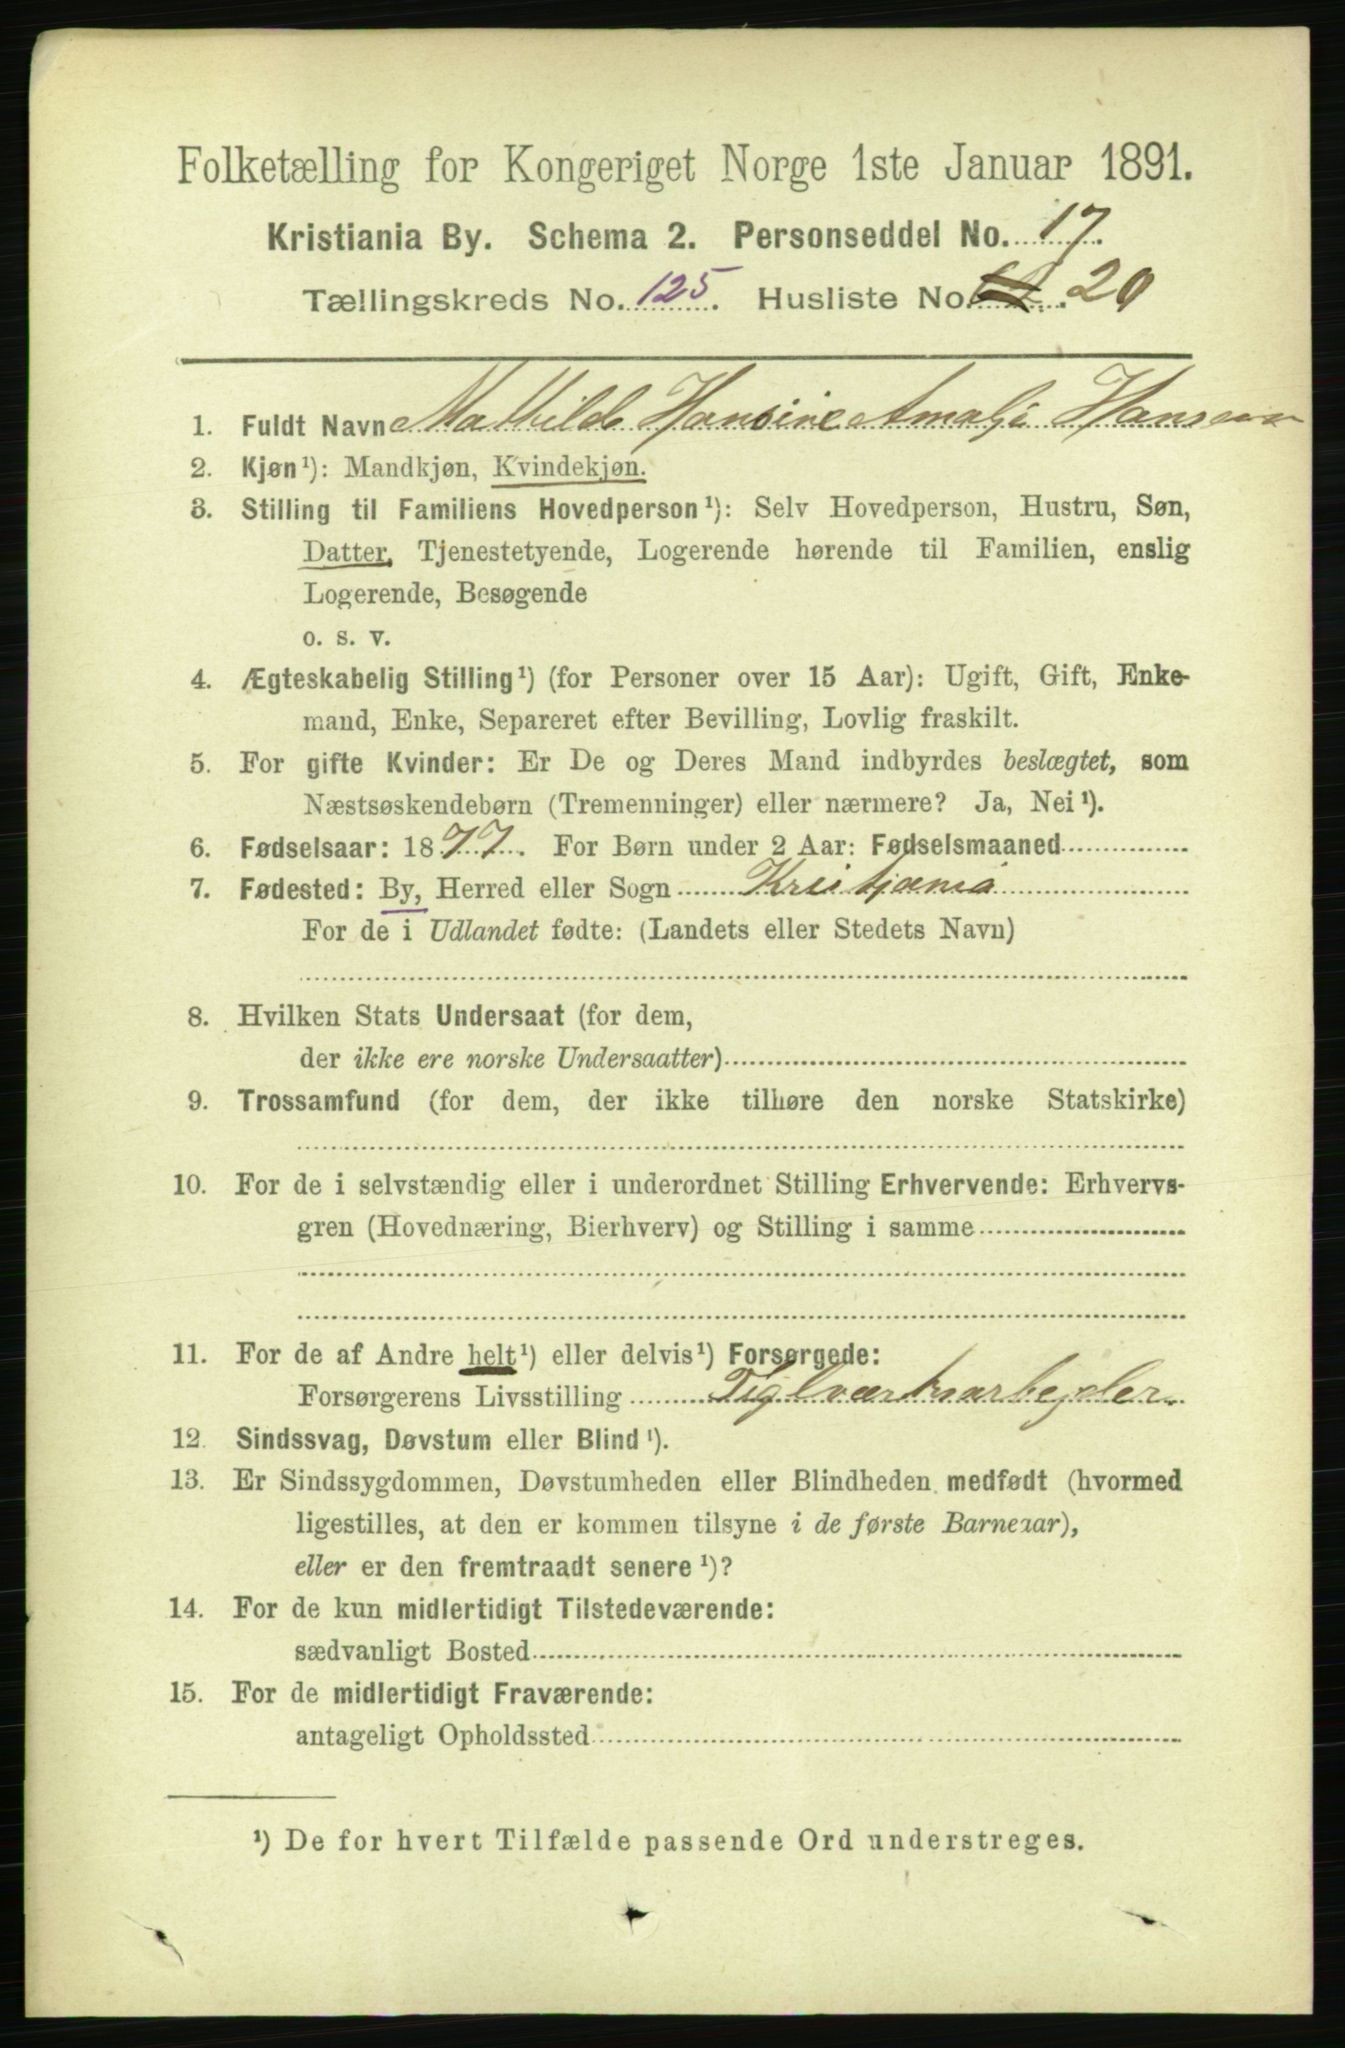 Folketælling for Kongeriget Norge 1ste Januar 1891.
Kristiania By. Schema 2. Personseddel No. 17.
Tællingskreds No. 125. Husliste No. 20
1. Fuldt Navn Mathilde Hansine Amalje Hansen
2. Kjøn¹): Mandkjøn, Kvindekjøn.
3. Stilling til Familiens Hovedperson¹): Selv Hovedperson, Hustru, Søn,
Datter, Tjenestetyende, Logerende hørende til Familien, enslig
Logerende, Besøgende
o. s. v.
4. Ægteskabelig Stilling¹) (for Personer over 15 Aar): Ugift, Gift, Enke-
mand, Enke, Separeret efter Bevilling, Lovlig fraskilt.
5. For gifte Kvinder: Er De og Deres Mand indbyrdes beslægtet, som
Næstsøskendebørn (Tremenninger) eller nærmere? Ja, Nei¹).
6. Fødselsaar: 1877. For Børn under 2 Aar: Fødselsmaaned
7. Fødested: By, Herred eller Sogn Kristjania
For de i Udlandet fødte: (Landets eller Stedets Navn)
8. Hvilken Stats Undersaat (for dem,
der ikke ere norske Undersaatter)
9. Trossamfund (for dem, der ikke tilhøre den norske Statskirke)
10. For de i selvstændig eller i underordnet Stilling Erhvervende: Erhvervs-
gren (Hovednæring, Bierhverv) og Stilling i samme
11. For de af Andre helt¹) eller delvis¹) Forsørgede:
Forsørgerens Livsstilling Teglværksarbejder.
12. Sindssvag, Døvstum eller Blind¹).
13. Er Sindssygdommen, Døvstumheden eller Blindheden medfødt (hvormed
ligestilles, at den er kommen tilsyne i de første Barneaar),
eller er den fremtraadt senere¹)?
14. For de kun midlertidigt Tilstedeværende:
sædvanligt Bosted
15. For de midlertidigt Fraværende:
antageligt Opholdssted
¹) De for hvert Tilfælde passende Ord understreges.